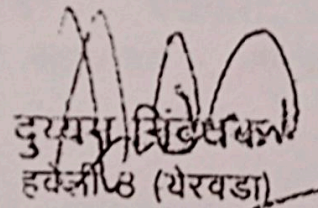 दुय्यम निबंधक
हवेली ८ (येरवडा)